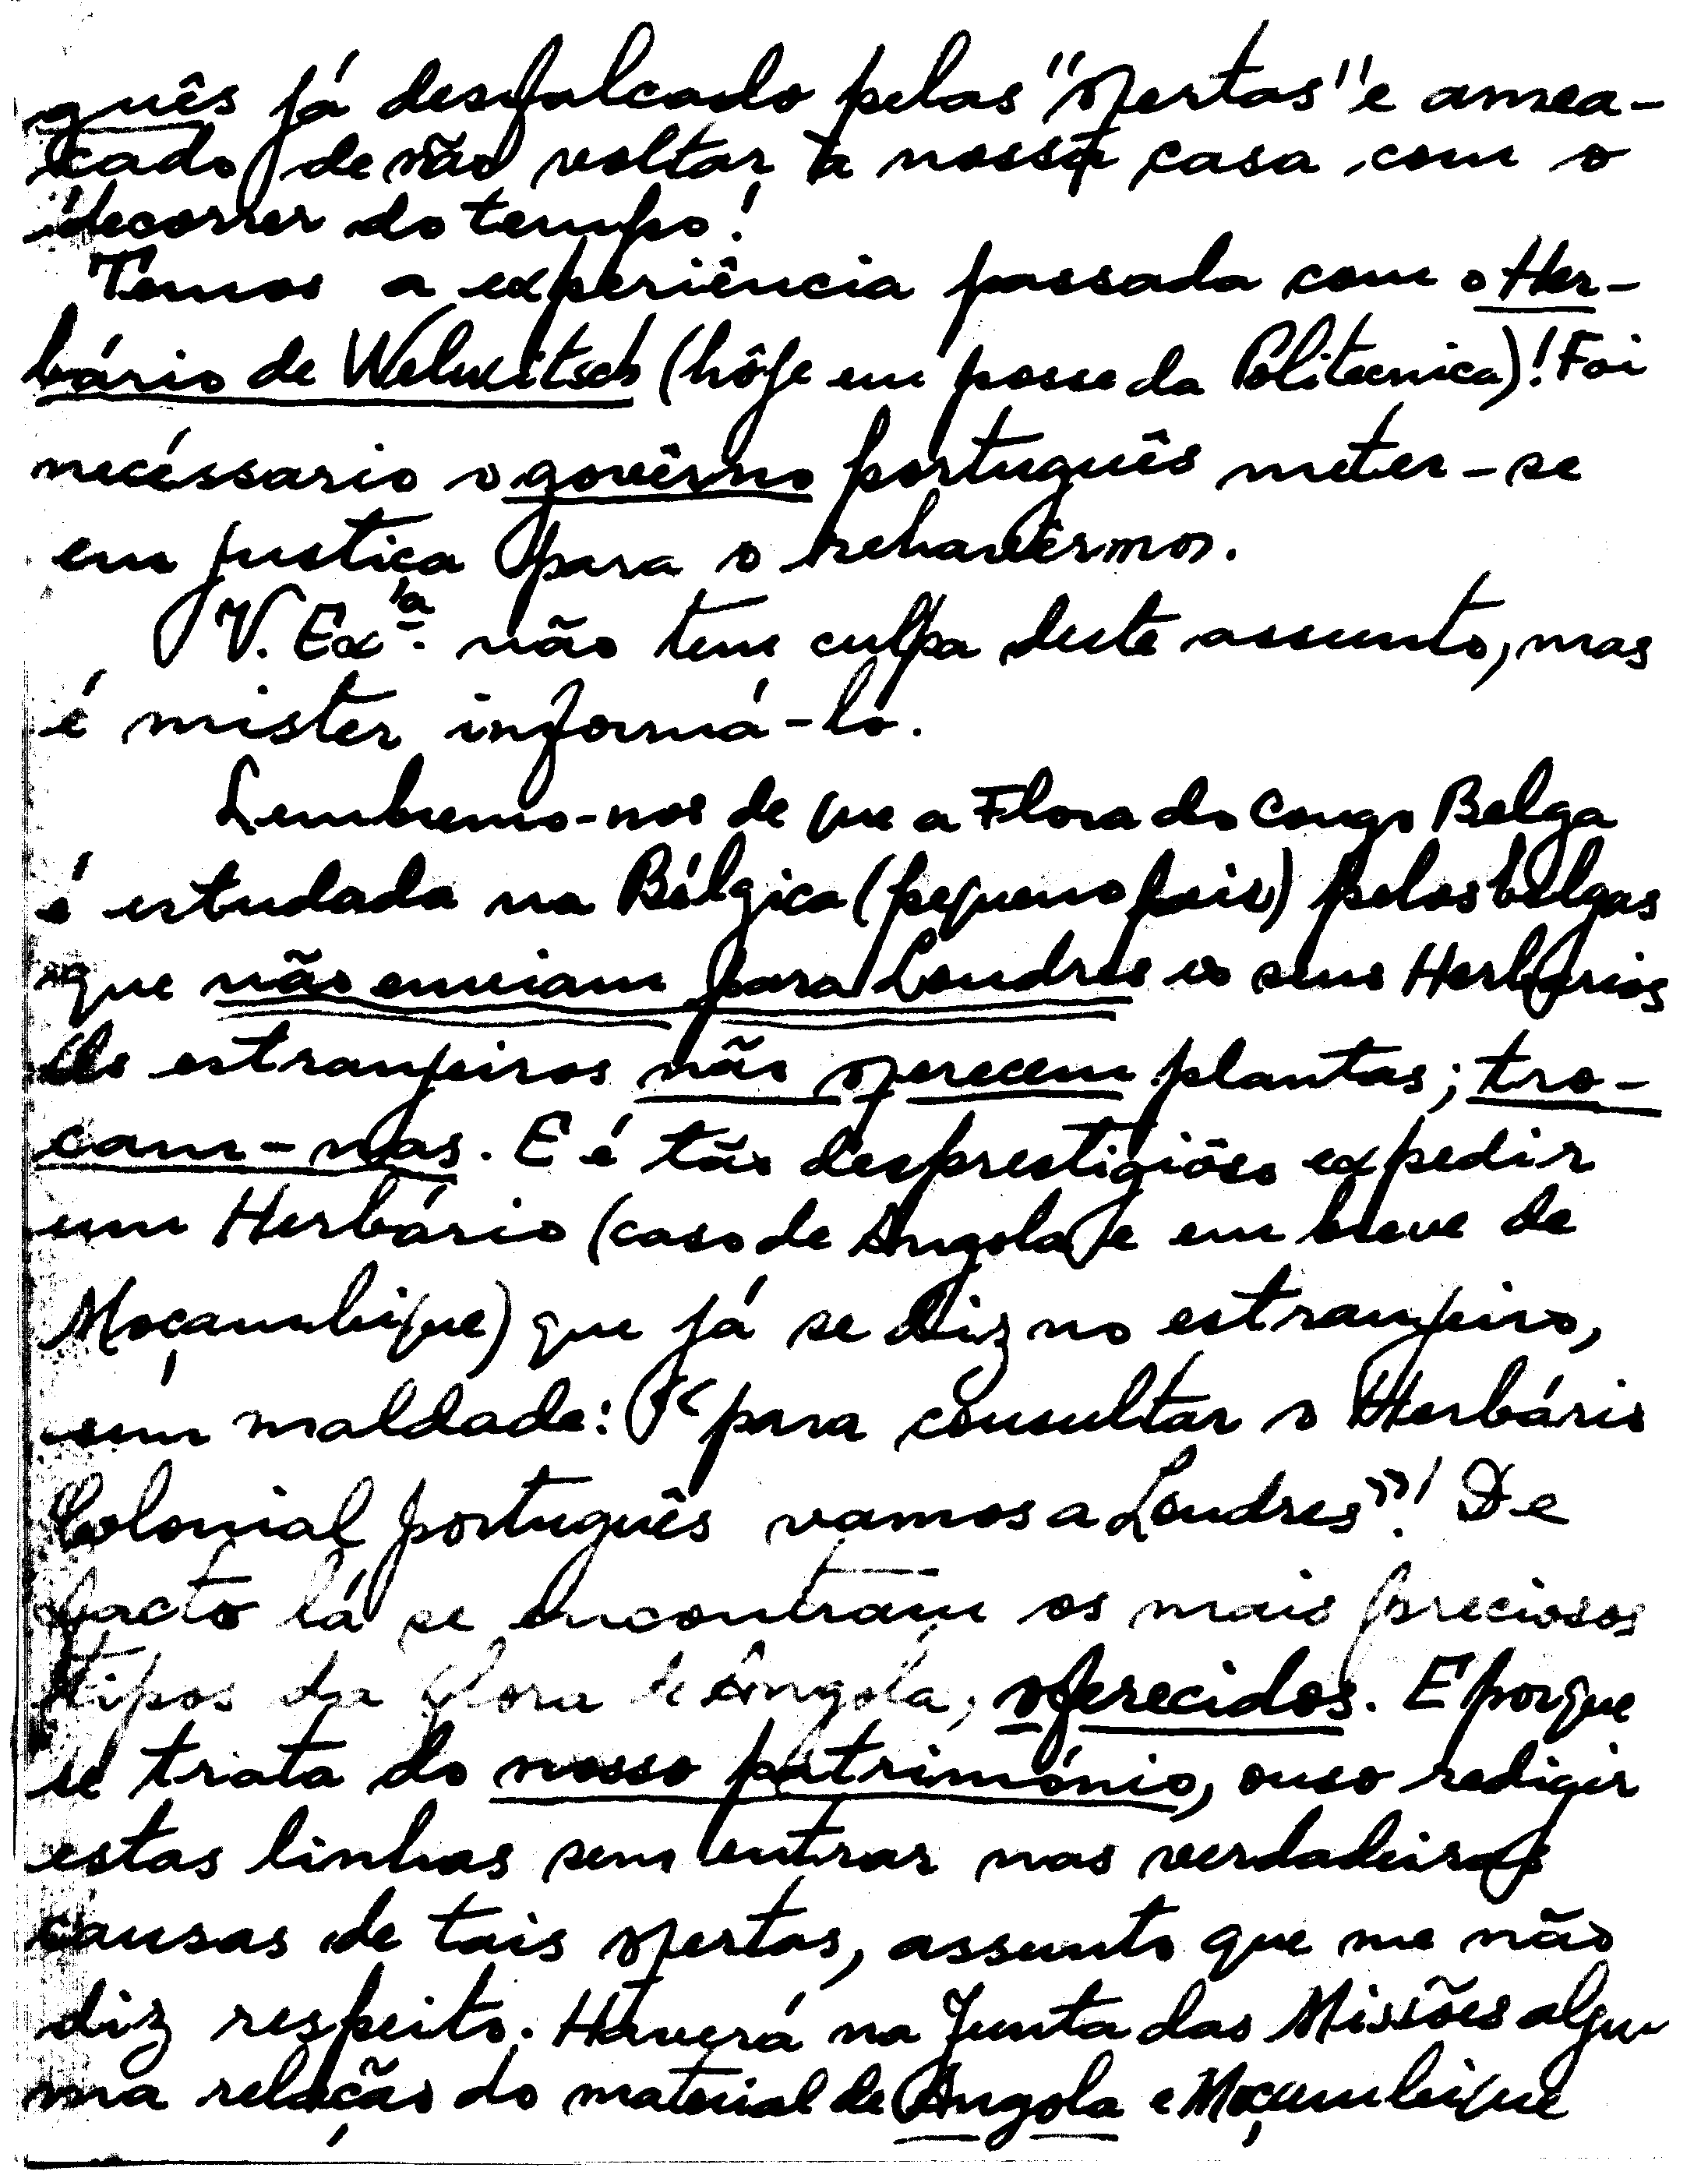 guês já desfalcado pelas "ofertas" e amea-
çado de não voltar à nossa casa com o
decorrer do tempo!
Temos a experiência passada com o Her-
bário de Welwitsch (hôje em posse da Politecnica)! Foi
necéssario o govêrno português meter-se
em justiça para o rehavêrmos.
V. Exª. não tem culpa deste assunto, mas
é mister informá-lo.
Lembremo-nos de que a Flora do Congo Belga
é estudada na Bélgica (pequeno país) pelos belgas
que não enviam para Londres os seus Herbários
Os estranjeiros não oferecem plantas; tro-
cam-nas. E é tão desprestigiôso expedir
um Herbário (caso de Angola e em breve de
Moçambique) que já se diz no estranjeiro,
com maldade: «para consultar o Herbário
Colonial português vamos a Londres»! De
facto lá se encontram os mais preciosos
tipos da flora de Angola, oferecidos. E porque
se trata do nosso património, ouso redigir
estas linhas sem entrar nas verdadeiras
causas de tais ofertas, assunto que me não
diz respeito. Haverá na Junta das Missões algu-
ma relação do material de Angola e Moçambique